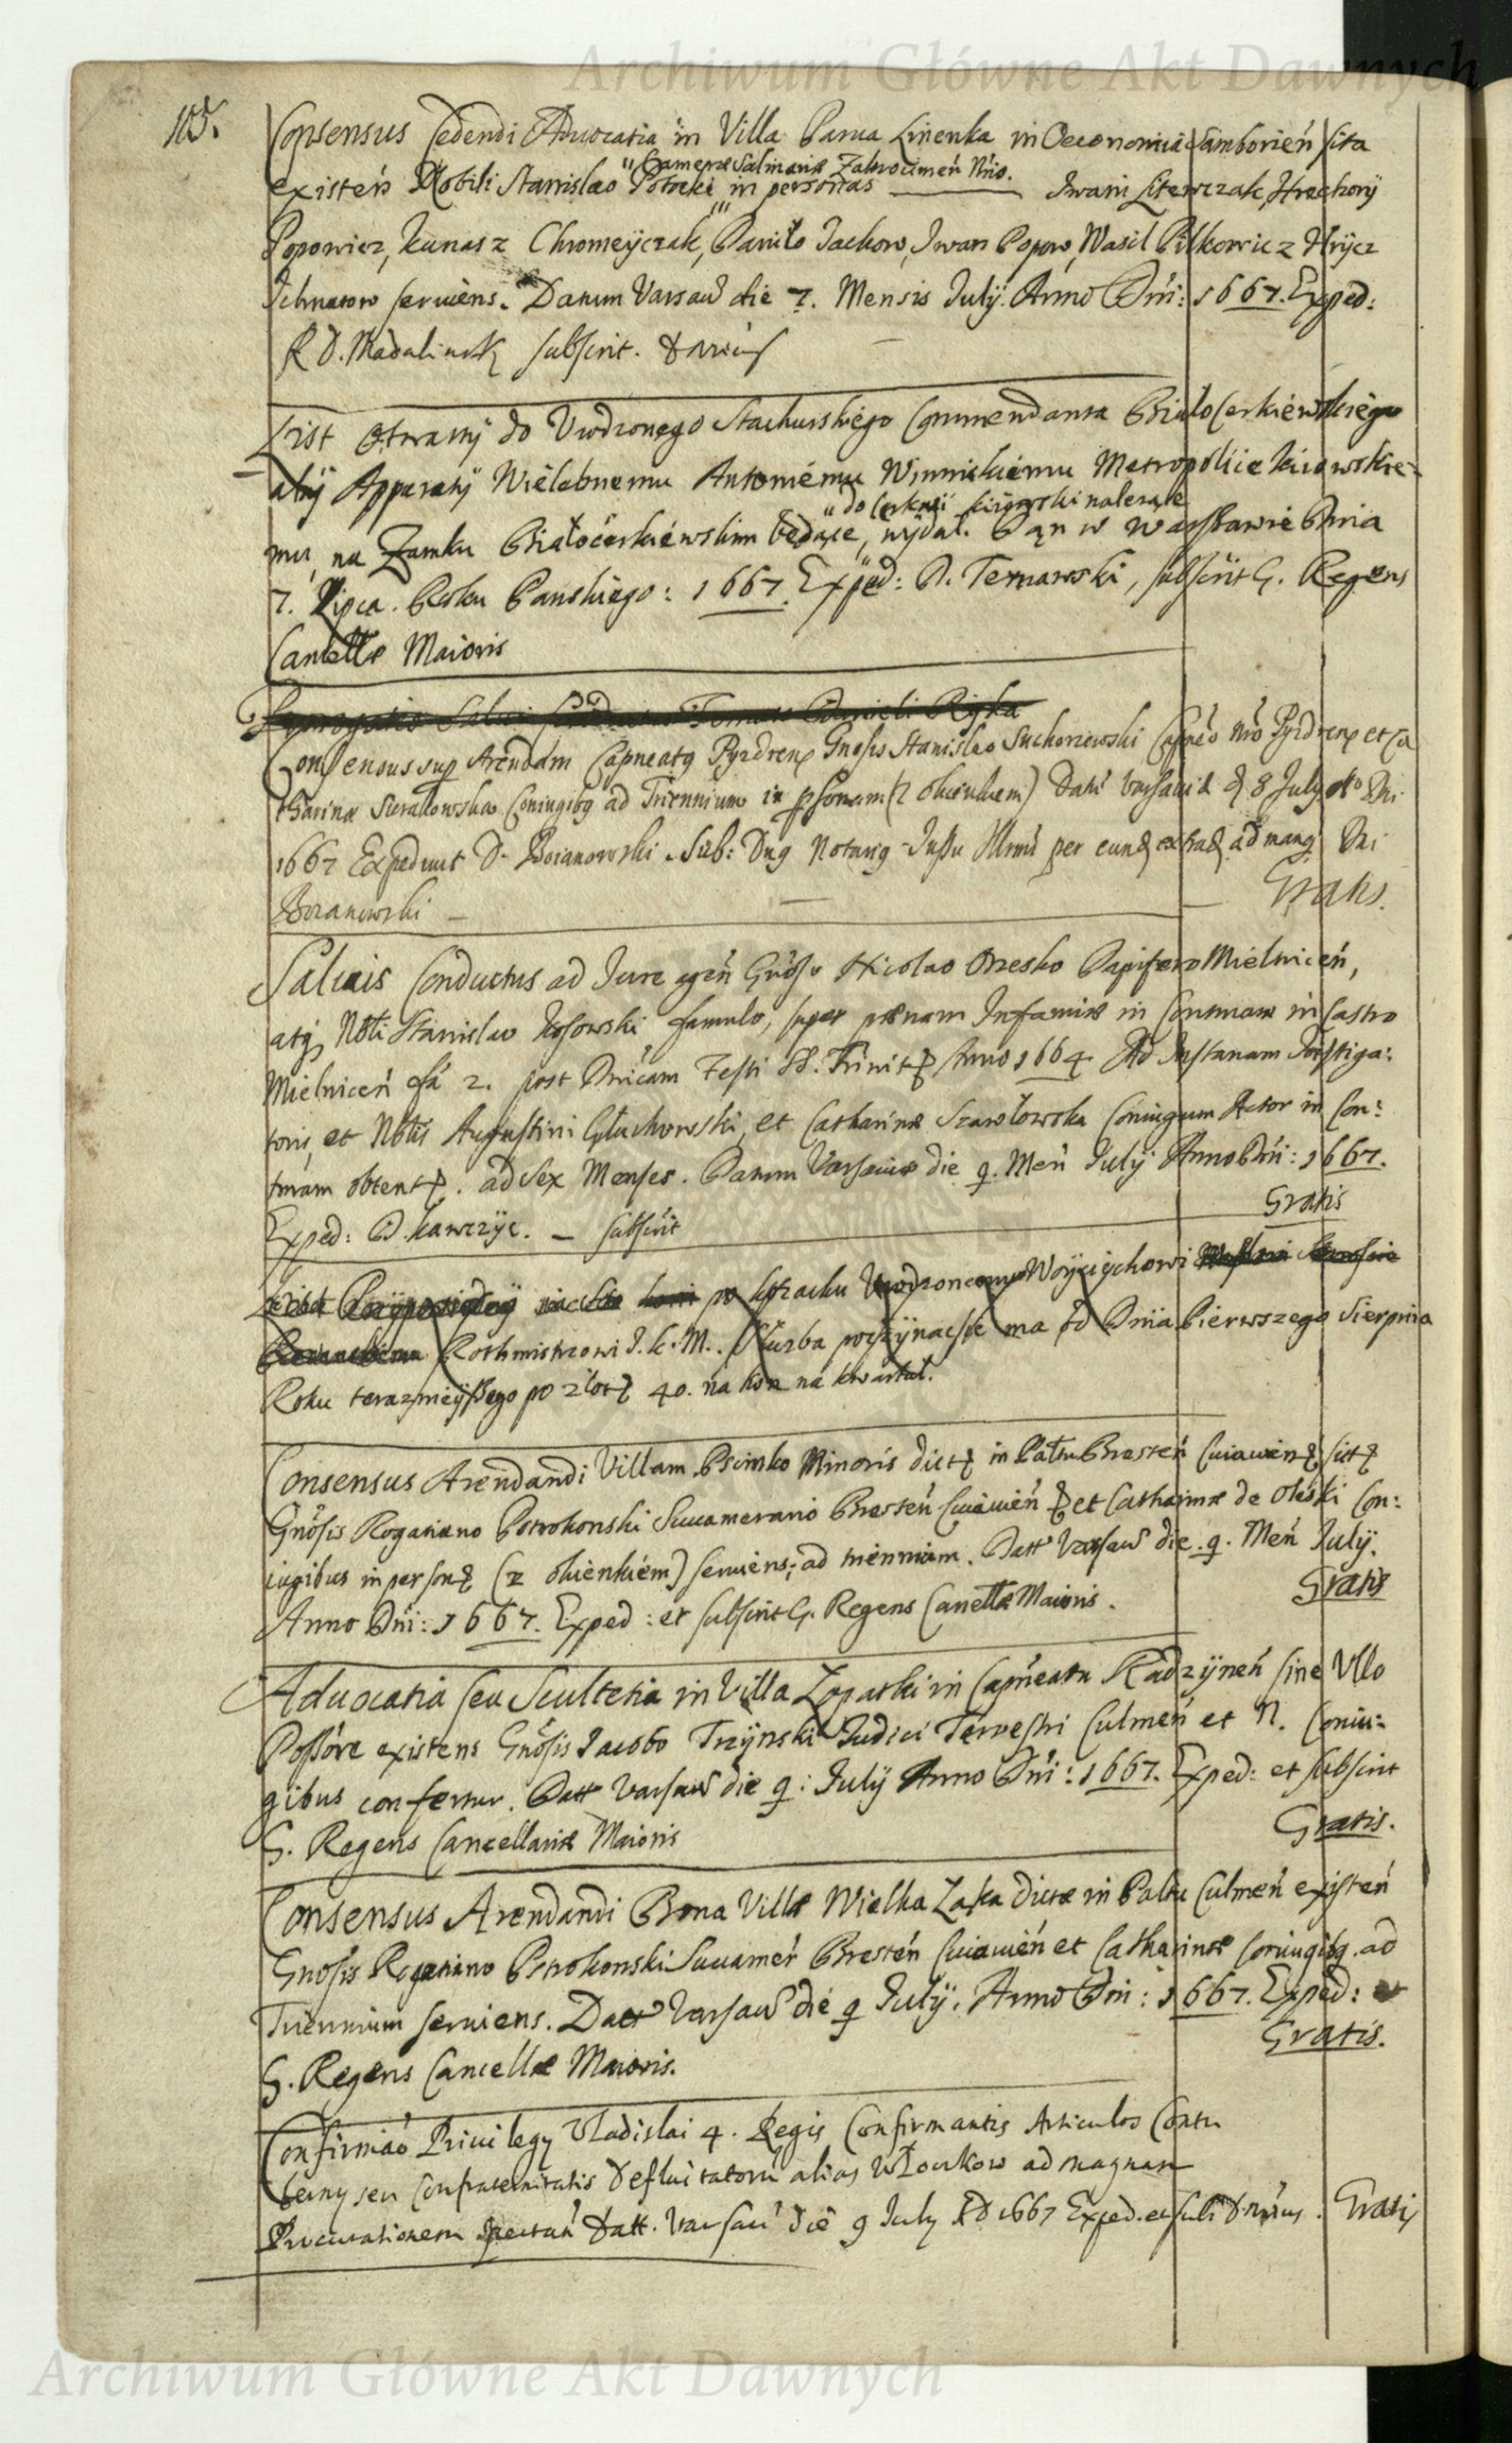 Archiwum Główne Akt Dawnych
105.
Consensus Cedendi Advocatia in Villa Parua Linenka in Oeconomia Samborień sita
"Camerae Salinariae Zakrocimeń Nrio.
existeń Nobili Stanislao Potocki in personas Iwani Litewczak, Hrehorÿ
Popowicz, Kunasz Chromeÿczak, Daniło Jackow, Iwan Popow, Wasil Pilkowicz Hrÿcz
Ichnatow seruiens. Datum Varsau die 7. Mensis Julÿ. Anno Dni: 1667. Exped:
R D. Madalinsk subscrit.
List Otwartÿ do Vrodzonego Stachurskiego Commendanta Białocerkiewskiego
abÿ Apparatÿ Wielebnemu Antoniemu Winnickiemu Metropolicie kiiowskie-
"do Cerkwi kiiowski nalezące
mu, na Zamku Białocerkiewskim będące, wÿdał. Dan w Warszawie Dnia
7. Lipca. Roku Panskiego: 1667. Exped: D. Ternawski, subscrit G. Regens
Cancellae Maioris
Consensus sup Arendam Capneatq Pyzdren Gnosis Stanislao Suchorzewski Capneo nro Pyzdren et Ca
tharinae Sierakowska Coniugibq ad Triennium in psonam (z okienkiem) Dat Varsaviae d 8 July Ao Dni
1667 Expediuit D. Boianowski. Sub: Dnq Notariq Jussu Illrmi per eund extrad ad manq Dni
Boianowski Gratis.
Saluus Conductus ad Jure agen Gnoso Nicolao Orzesko Dapifero Mielniceń,
atq Nobli Stanislao Kosowski famulo, super paenam Infamiae in Contumam in Castro
Mielniceń fa 2. post Dnicam Festi SS. Trinit Anno 1664 Ad Instanam Instiga:
toris, et Nobis Augustini Głuchowski, et Catharinae Szawłowska Coniugum Actor in Con:
tmam obtent. ad Sex Menses. Datum Varsauiae die 9. Meń Julÿ Anno Dni: 1667.
Gratis
Exped: D. kawczÿc. – subscrit
List Przypowiednÿ po kozacku Vrodzonemu Woÿciechowi
Rothmistrzowi J. K. M. Służba poczÿnac sie ma od Dnia Pierwszego Sierpnia
Roku teraznieÿszego po złot 40. na kon na kwartał.
Consensus Arendandi Villam Pscinko Minoris dict in Paltu Bresteń Cuiauien sit
Gnosis Rogatiano Pstrokonski Succamerario Bresteń Cuiauień et Catharinae de Oleski Con:
iugibus in person (z okienkiem) seruiens; ad triennium. Datt Varsau die. 9. Meń Julÿ.
Gratis
Anno Dni: 1667. Exped: et subscrit G. Regens Cancellae Maioris.
Aduocatia seu Scultetia in Villa Łopatki in Capneatu Radzÿneń sine Vllo
Possore existens Gnosis Jacobo Trzÿnski Judici Terrestri Culmeń et N. Coniu:
gibus confertur. Datt Varsau die 9: Julÿ Anno Dni: 1667. Exped: et subscrit
Gratis.
G. Regens Cancellariae Maioris
Consensus Arendandi Bona Villae Wielka Łąka dictae in Paltu Culmeń existeń
Gnosis Rogatiano Pstrokonski Succameř Bresteń Cuiauień et Catharinae coniugibq. ad
Triennium seruiens. Datt Varsau die 9 Julÿ. Anno Dni: 1667. Exped: et
Gratis.
G. Regens Cancellae Maioris.
Confirmao Priuilegy Vladislai 4. Regis Confirmantis Articulos Contu
berny seu Confraternitatis Defluitatorū alias Włoczkow ad magnam
Procurationem spectań Datt. Varsau die 9 July AD 1667 Exped. et sub Gratis
Archiwum Główne Akt Dawnych